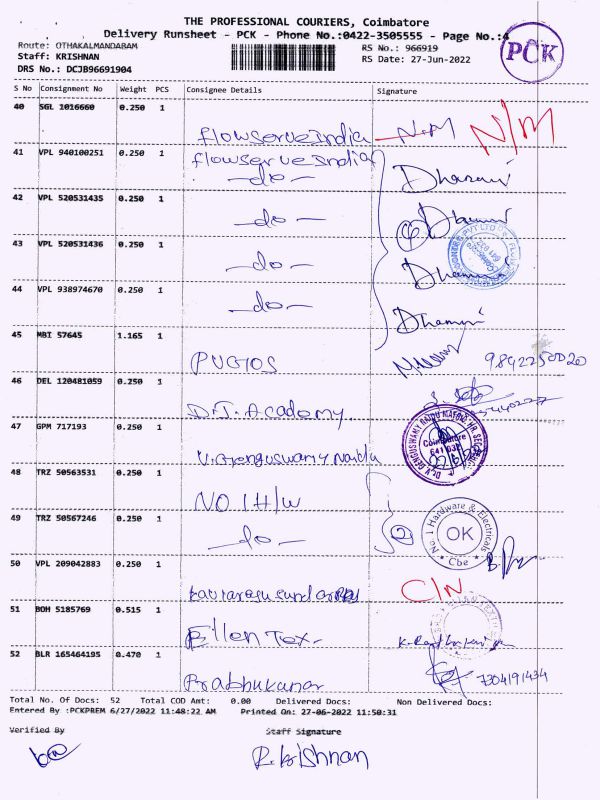 THE PROFESSIONAL COURIERS, Coimbatore
Delivery Runsheet - PCK - Phone No.:0422-3505555 - Page No.:4
PCK
Route: OTHAKALMANDABAM
Staff: KRISHNAN
DRS No.: DCJB96691904
RS No.: 966919
RS Date: 27-Jun-2022
S No Consignment No Weight PCS Consignee Details Signature
40 SGL 1016660 0.250 1
flowserve india N.M N/M
41 VPL 940100251 0.250 1 flowserve India
-do- Dharani
42 VPL 520531435 0.250 1
-do- 4
43 VPL 520531436 0.250 1
-do-
44 VPL 938974670 0.250 1
-do-
45 MBI 57645 1.165 1
PUGIOS 9842250020
46 DEL 120481059 0.250 1
D.J. Academy
47 GPM 717193 0.250 1
Coimbatore
48 TRZ 50563531 0.250 1
NO 1 H/W
49 TRZ 50567246 0.250 1
-do- 2
No 1 Hardware & Electricals
OK
Cbe
50 VPL 209042883 0.250 1
C/N
51 BOH 5185769 0.515 1
Ellen Tex.
52 BLR 165464195 0.470 1
Prabhukumar 7304191434
Total No. Of Docs: 52 Total COD Amt: 0.00 Delivered Docs: Non Delivered Docs:
Entered By :PCKPREM 6/27/2022 11:48:22 AM Printed On: 27-06-2022 11:50:31
Verified By Staff Signature
R. Krishnan